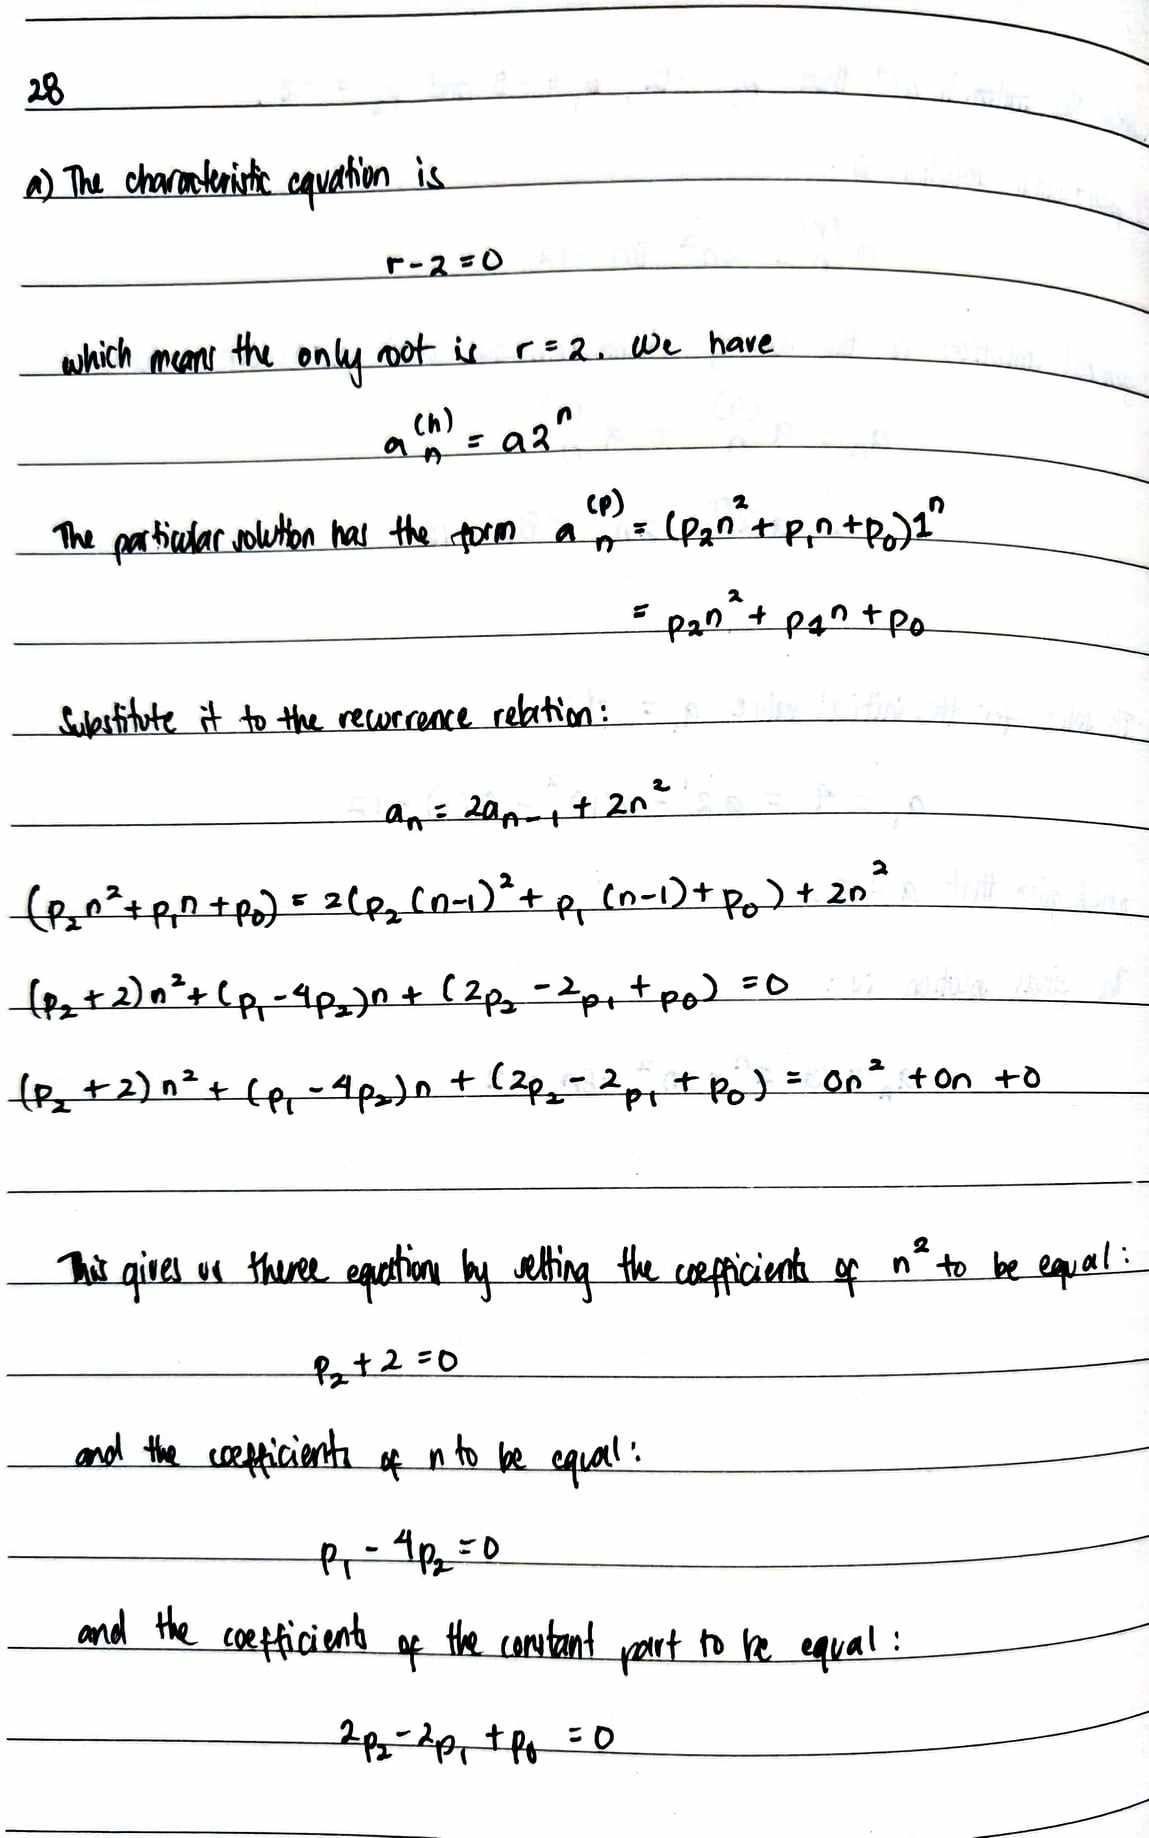 28
a) The characteristic equation is
r-2=0
which means the only root is r=2. We have
a_n^(h) = a2^n
The particular solution has the form a_n^(p) = (p_2n^2+p_1n+p_0)1^n
= p_2n^2+p_1n+p_0
Substitute it to the recurrence relation:
a_n = 2a_{n-1} + 2n^2
(p_2n^2+p_1n+p_0) = 2(p_2(n-1)^2+p_1(n-1)+p_0)+2n^2
(p_2+2)n^2+(p_1-4p_2)n+(2p_2-2p_1+p_0)=0
(p_2+2)n^2+(p_1-4p_2)n+(2p_2-2p_1+p_0)=0n^2+0n+0
This gives us theree equations by setting the coefficients of n^2 to be equal:
p_2+2=0
and the coefficients of n to be equal:
p_1-4p_2=0
and the coefficients of the constant part to be equal:
2p_2-2p_1+p_0=0